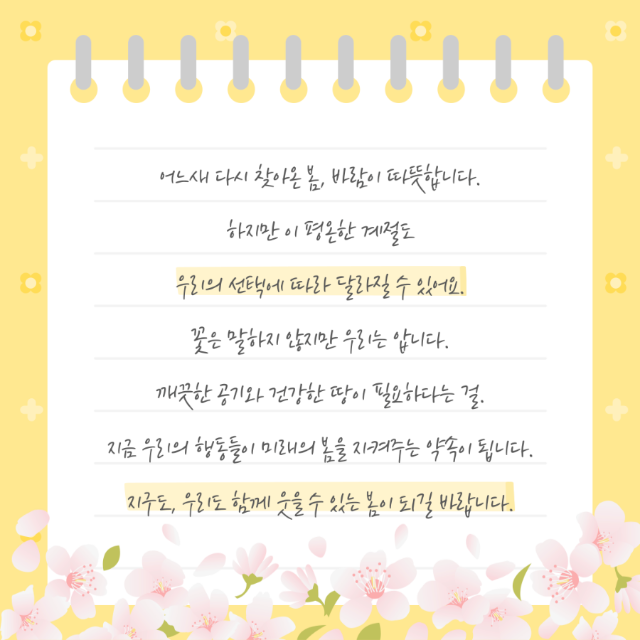 어느새 다시 찾아온 봄, 바람이 따뜻합니다.
하지만 이 평온한 계절도
우리의 선택에 따라 달라질 수 있어요.
꽃은 말하지 않지만 우리는 압니다.
깨끗한 공기와 건강한 땅이 필요하다는 걸.
지금 우리의 행동들이 미래의 봄을 지켜주는 약속이 됩니다.
지구도, 우리도 함께 웃을 수 있는 봄이 되길 바랍니다.